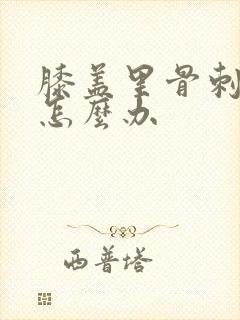 膝盖里骨刺
怎麼办
西普塔